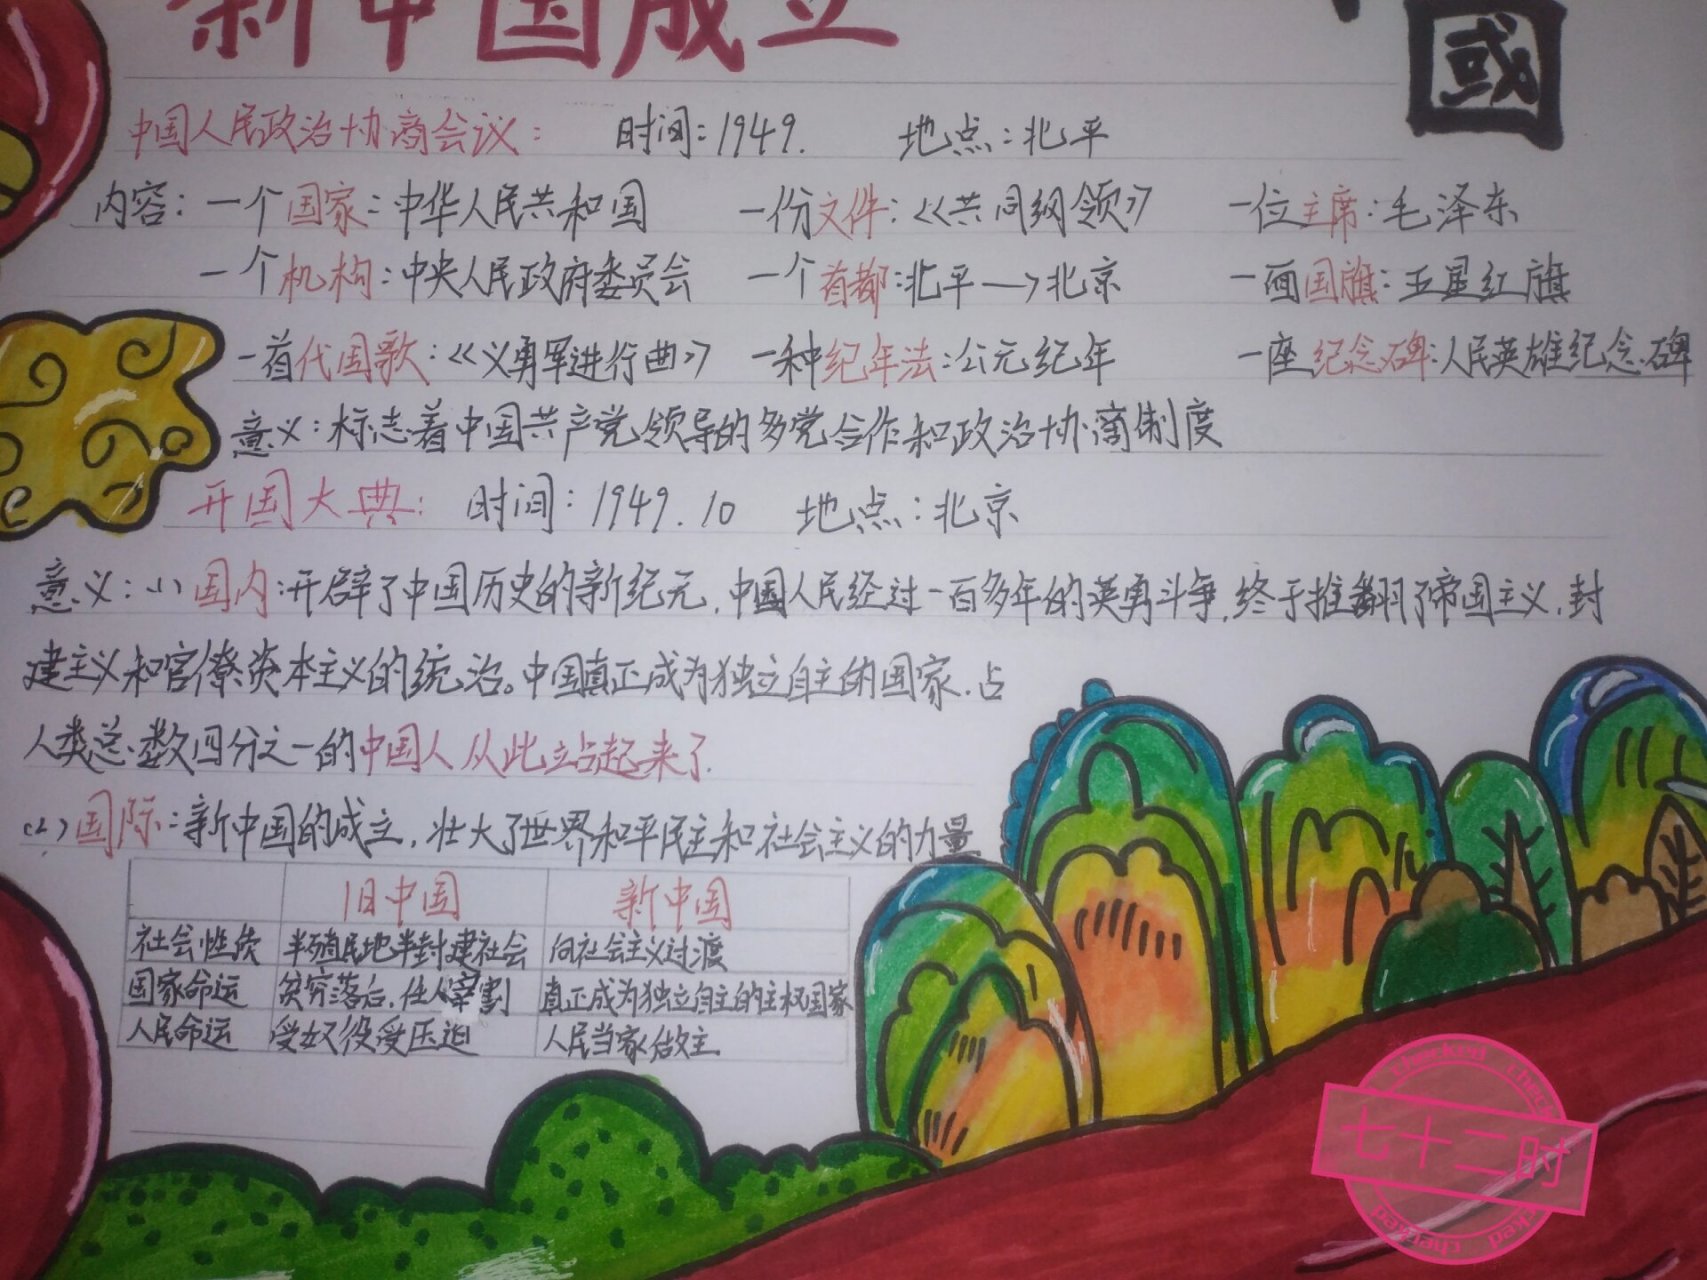 新中国成立
國
中国人民政治协商会议： 时间：1949. 地点：北平
内容：一个国家：中华人民共和国 一份文件：《共同纲领》 一位主席：毛泽东
一个机构：中央人民政府委员会 一个首都：北平→北京 一面国旗：五星红旗
一首代国歌：《义勇军进行曲》 一种纪年法：公元纪年 一座纪念碑：人民英雄纪念碑
意义：标志着中国共产党领导的多党合作和政治协商制度
开国大典： 时间：1949.10 地点：北京
意义：(1)国内：开辟了中国历史的新纪元，中国人民经过一百多年的英勇斗争，终于推翻了帝国主义，封
建主义和官僚资本主义的统治。中国真正成为独立自主的国家，占
人类总数四分之一的中国人从此站起来了.
(2)国际：新中国的成立，壮大了世界和平民主和社会主义的力量
旧中国 新中国
社会性质 半殖民地半封建社会 向社会主义过渡
国家命运 贫穷落后，任人宰割 真正成为独立自主的主权国家
人民命运 受奴役受压迫 人民当家做主
checked checked
七十二时
checked checked